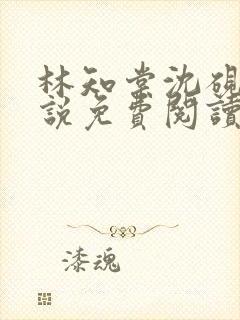 林知棠沈硯
說免費閱讀
漆魂